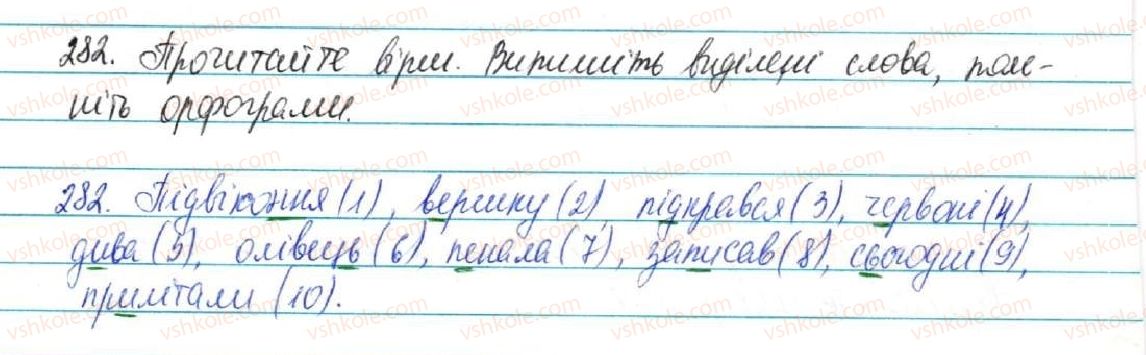 282. Прочитайте вірш. Випишіть виділені слова, пояс-
ніть орфограми.
282. Підвіконня (1), вершку (2), підкрався (3), червоні (4),
дива (5), олівець (6), пенала (7), записав (8), сьогодні (9),
прилітали (10).